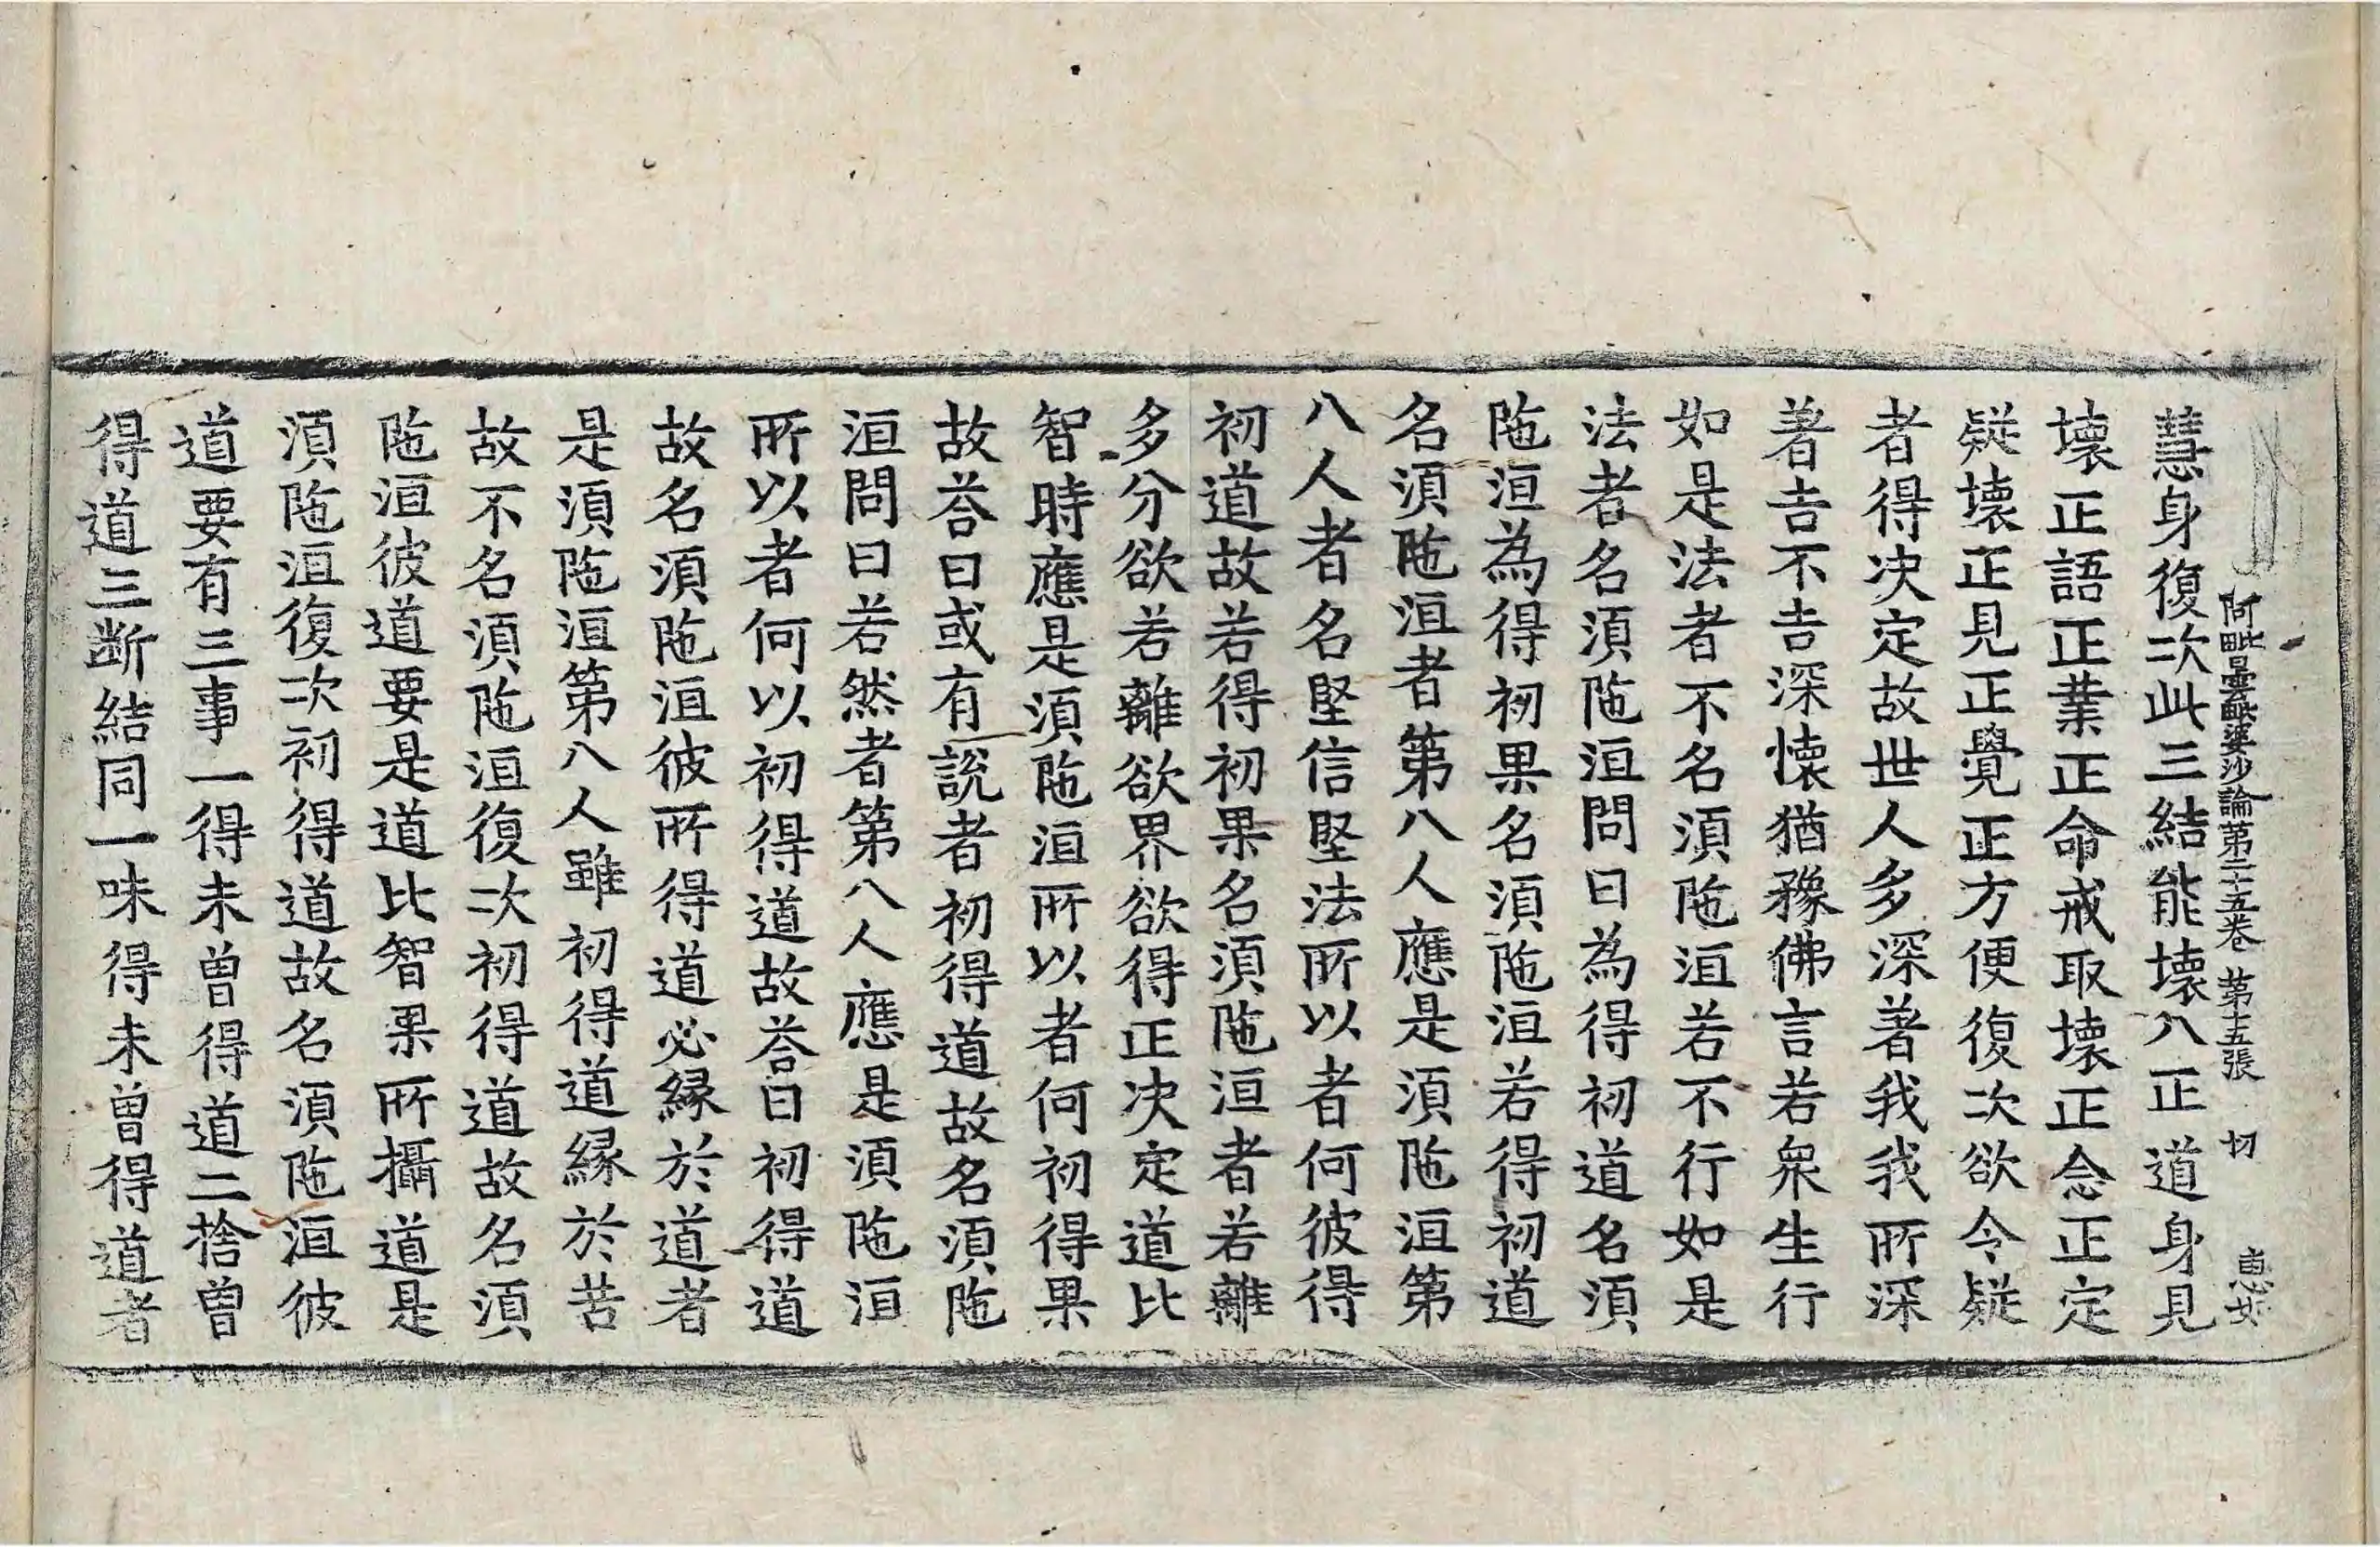 阿毗曇毗婆沙論第二十五卷 第十五張 切
慧身復次此三結能壞八正道身見
壞正語正業正命戒取壞正念正定
疑壞正見正覺正方便復次欲令疑
者得决定故世人多深著我我所深
著吉不吉深懷猶豫佛言若衆生行
如是法者不名湏陁洹若不行如是
法者名湏陁洹問曰為得初道名湏
陁洹為得初果名湏陁洹若得初道
名湏陁洹者第八人應是湏陁洹第
八人者名堅信堅法所以者何彼得
初道故若得初果名湏陁洹者若離
多分欲若離欲界欲得正决定道比
智時應是湏陁洹所以者何初得果
故荅曰或有說者初得道故名湏陁
洹問曰若然者第八人應是湏陁洹
所以者何以初得道故荅曰初得道
故名湏陁洹彼所得道必緣於道者
是湏陁洹第八人雖初得道緣於苦
故不名湏陁洹復次初得道故名湏
陁洹彼道要是道比智果所攝道是
湏陁洹復次初得道故名湏陁洹彼
道要有三事一得未曾得道二捨曾
得道三断結同一味得未曾得道者